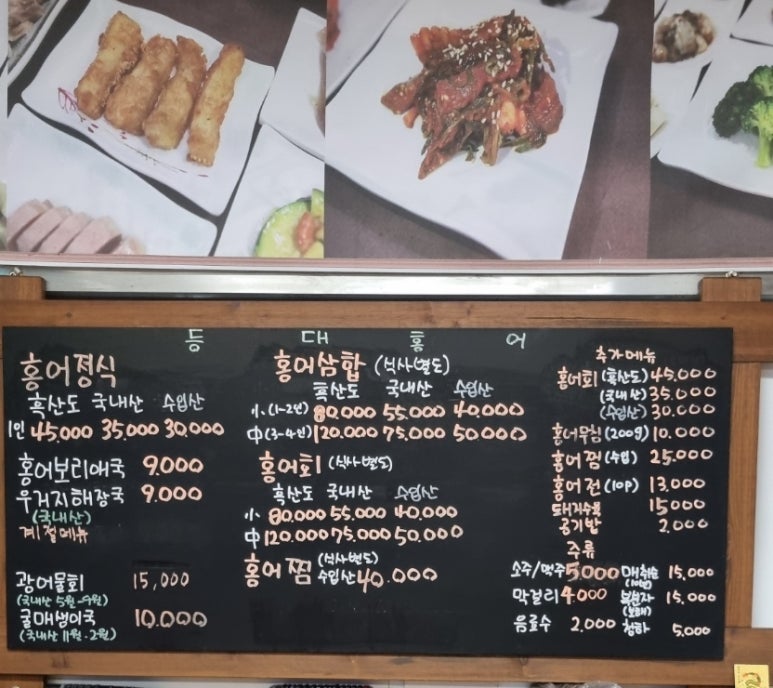 등대홍어
홍어정식
흑산도 국내산 수입산
1인 45.000 35.000 30.000
홍어보리애국 9.000
우거지해장국 9.000
(국내산)
계절메뉴
광어물회 15,000
(국내산 5월-9월)
굴매생이국 10.000
(국내산 11월-2월)
홍어삼합 (식사별도)
흑산도 국내산 수입산
小(1-2인) 80.000 55.000 40.000
中(3-4인) 120.000 75.000 50.000
홍어회 (식사별도)
흑산도 국내산 수입산
小 80.000 55.000 40.000
中 120.000 75.000 50.000
홍어찜 (식사별도)
수입산 40.000
추가메뉴
홍어회 (흑산도) 45.000
(국내산) 35.000
(수입산) 30.000
홍어무침 (200g) 10.000
홍어찜 (수입) 25.000
홍어전 (10P) 13.000
돼지수육 15000
공기밥 2.000
주류
소주/맥주 5.000
막걸리 4.000
음료수 2.000
매취순 15,000
(10년)
복분자 15,000
청하 5,000